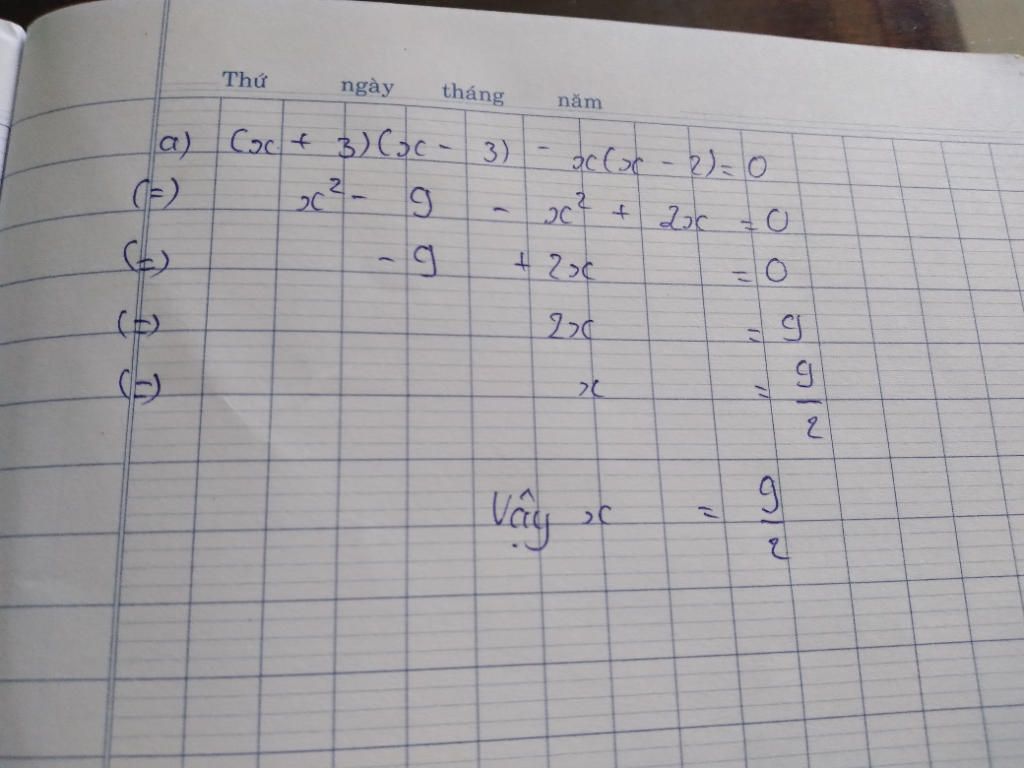 Thứ ngày tháng năm
a) (x + 3)(x - 3) - x(x - 2) = 0
(=) x² - 9 - x² + 2x = 0
(=) - 9 + 2x = 0
(=) 2x = 9
(=) x = 9/2
Vậy x = 9/2